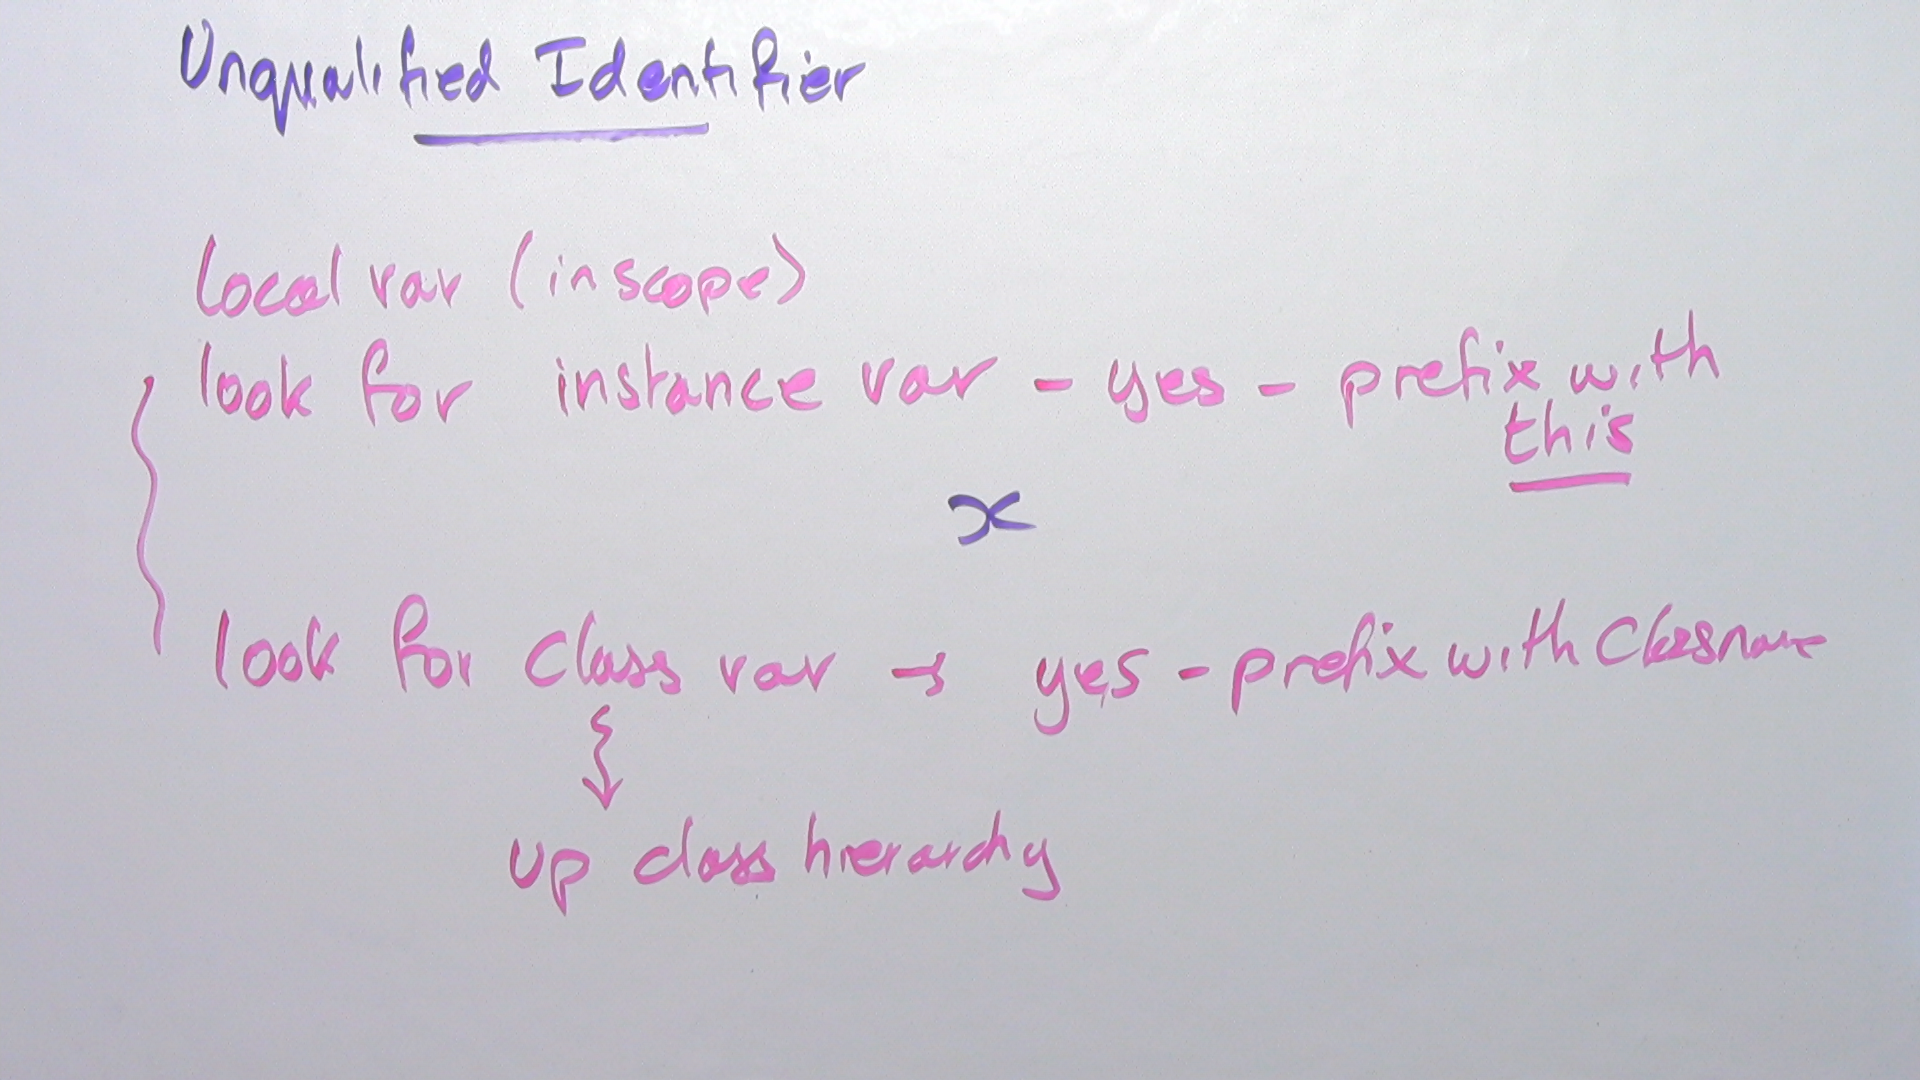 Unqualified Identifier
local var (in scope)
look for instance var - yes - prefix with
this
x
look for class var → yes - prefix with Classname
up class hierarchy